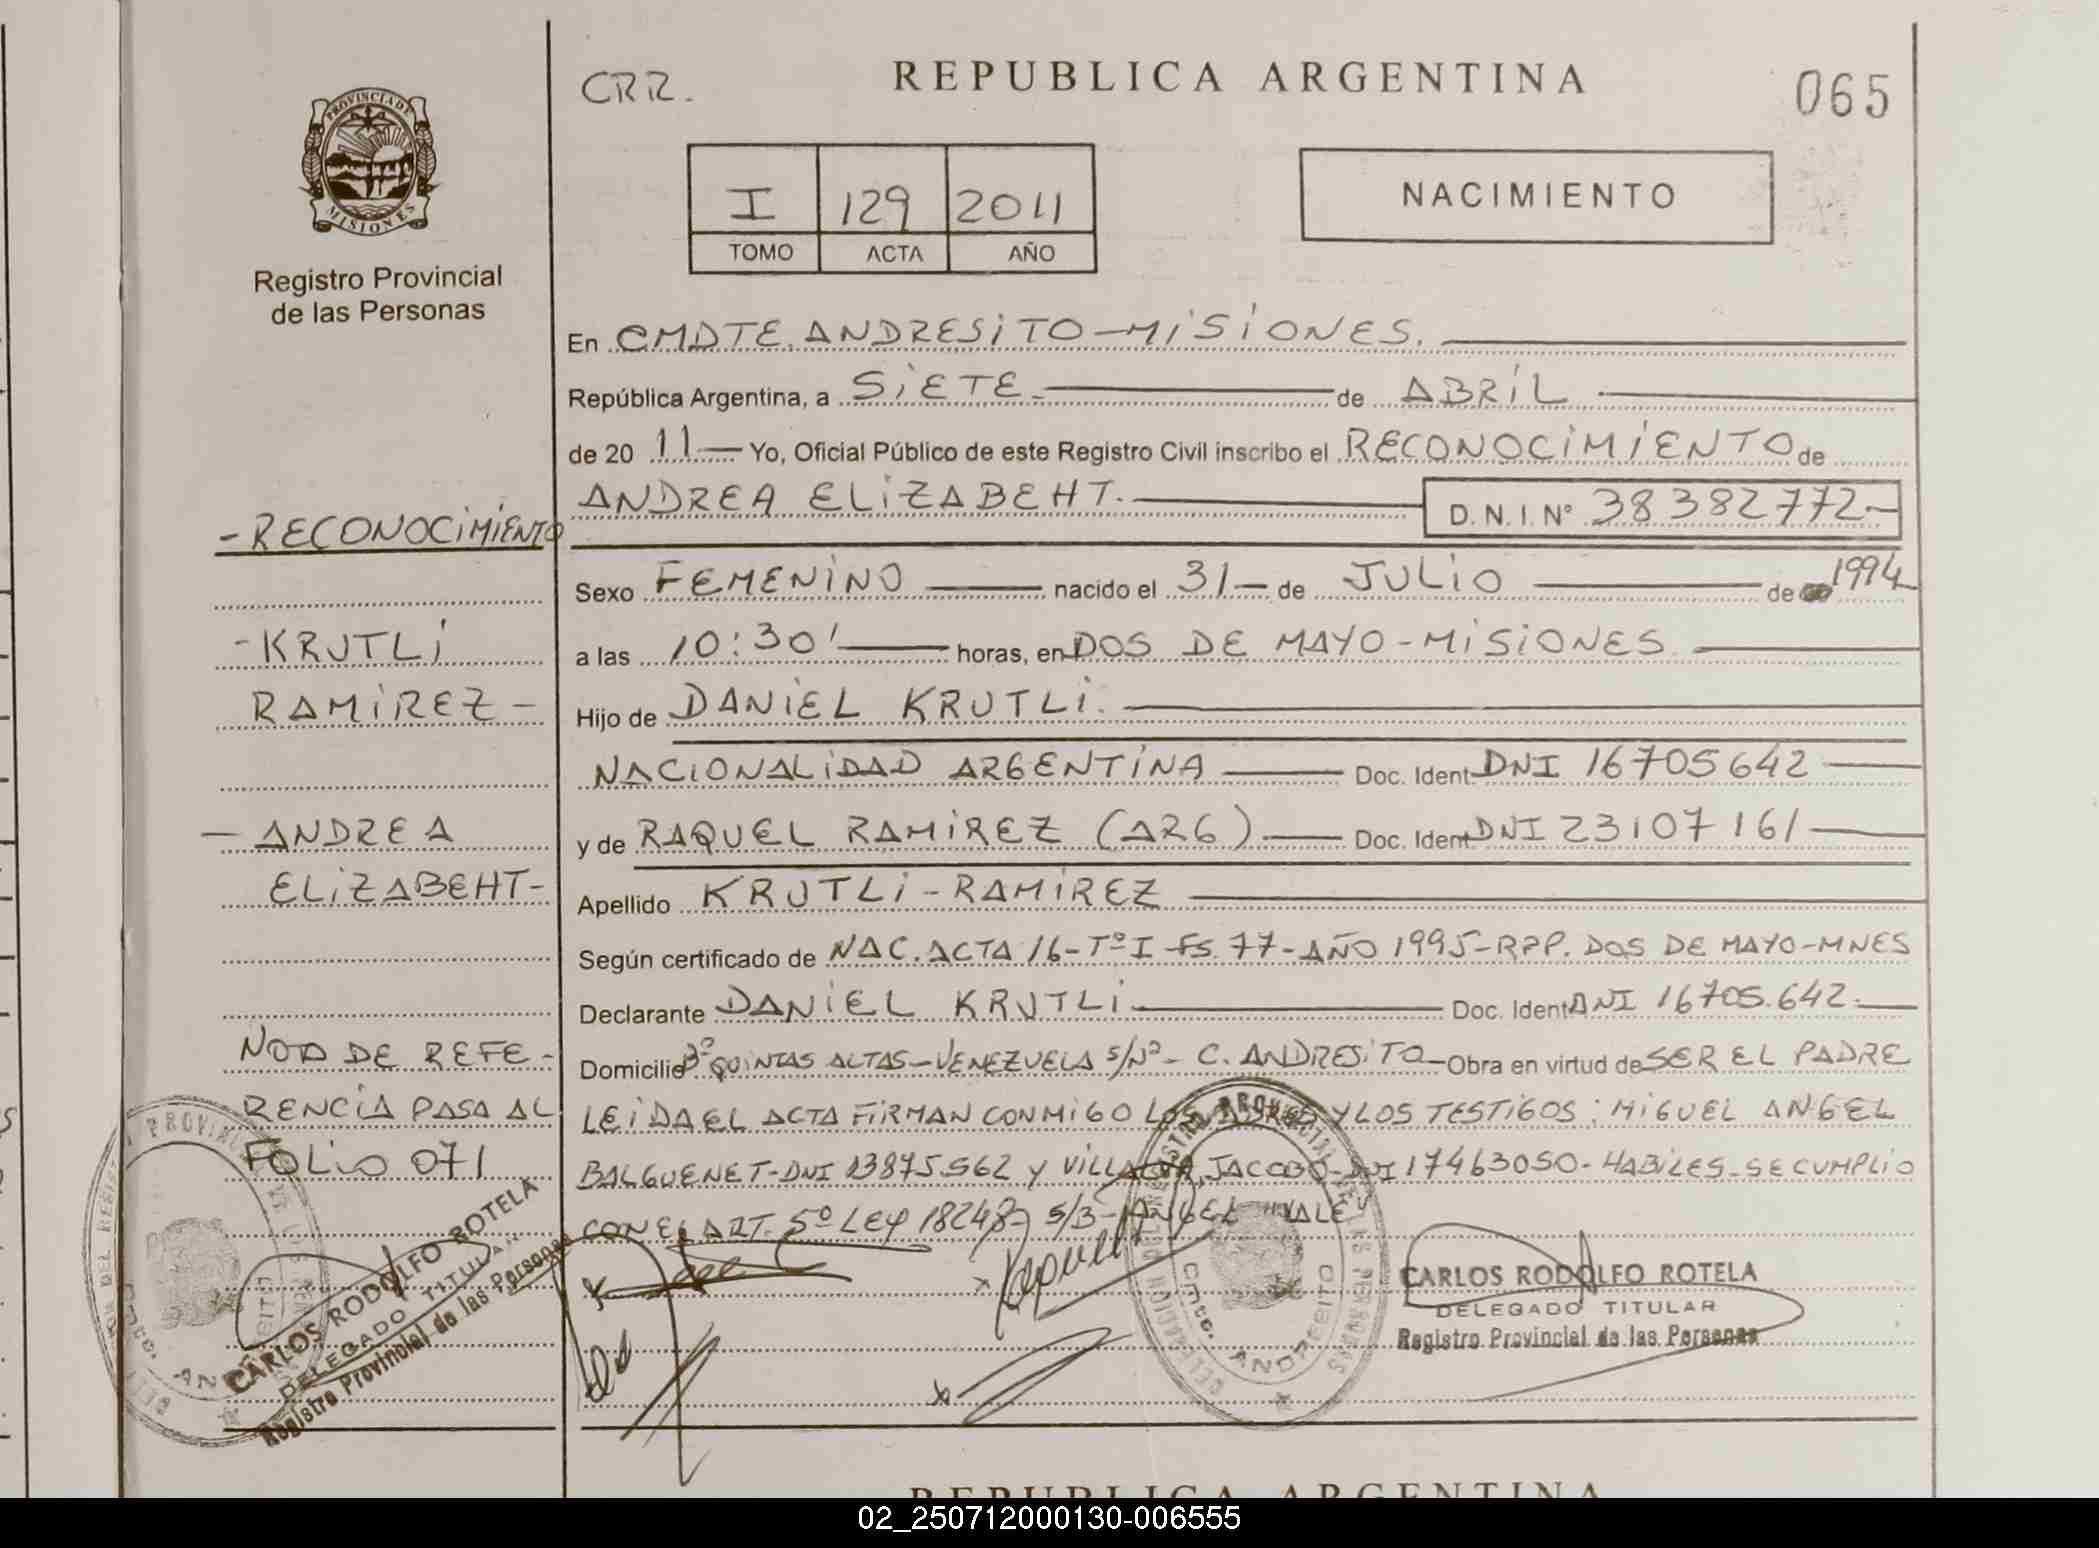 CRR.
REPUBLICA ARGENTINA
065
PROVINCIA DE
MISIONES
Registro Provincial
de las Personas
I 129 2011
TOMO ACTA AÑO
NACIMIENTO
En CMDTE. ANDRESITO-MISIONES.
República Argentina, a SIETE de ABRIL
de 20 11 Yo, Oficial Público de este Registro Civil inscribo el RECONOCIMIENTO de
ANDREA ELIZABEHT. D.N.I. Nº 38382772-
Sexo FEMENINO nacido el 31 de JULIO de 1994
a las 10:30' horas, en DOS DE MAYO-MISIONES
Hijo de DANIEL KRUTLI.
NACIONALIDAD ARGENTINA Doc. Ident. DNI 16705642
y de RAQUEL RAMIREZ (ARG) Doc. Ident. DNI 23107161
Apellido KRUTLI-RAMIREZ
Según certificado de NAC. ACTA 16-TºI-FS.77-AÑO 1995-RPP. DOS DE MAYO-MNES
Declarante DANIEL KRUTLI Doc. Ident. DNI 16705.642.
Domicilio Bº QUINTAS ALTAS-VENEZUELA S/Nº- C. ANDRESITO Obra en virtud de SER EL PADRE
LEIDA EL ACTA FIRMAN CONMIGO LOS Y LOS TESTIGOS: MIGUEL ANGEL
BALGUENET-DNI 13875562 Y JACOBO-DNI 17463050-HABILES-SE CUMPLIO
CON EL ART. 5º LEY 18248 S/B-ANGEL "VALE"
-RECONOCIMIENTO
-KRUTLI
RAMIREZ-
-ANDREA
ELIZABEHT-
NOTA DE REFE-
RENCIA PASA AL
FOLIO 071
CARLOS RODOLFO ROTELA
DELEGADO TITULAR
Registro Provincial de las Personas
Raquel
Cmte. ANDRESITO
CARLOS RODOLFO ROTELA
DELEGADO TITULAR
Registro Provincial de las Personas
REPUBLICA ARGENTINA
02_250712000130-006555